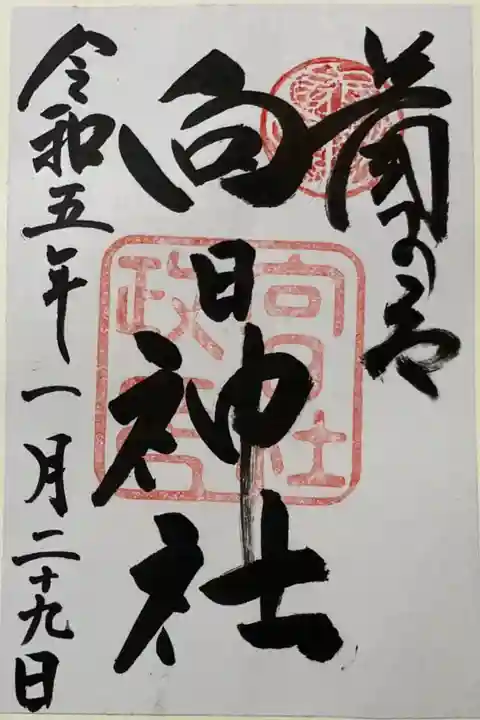 の
向日神社
向日社
政
令和五年一月二十九日